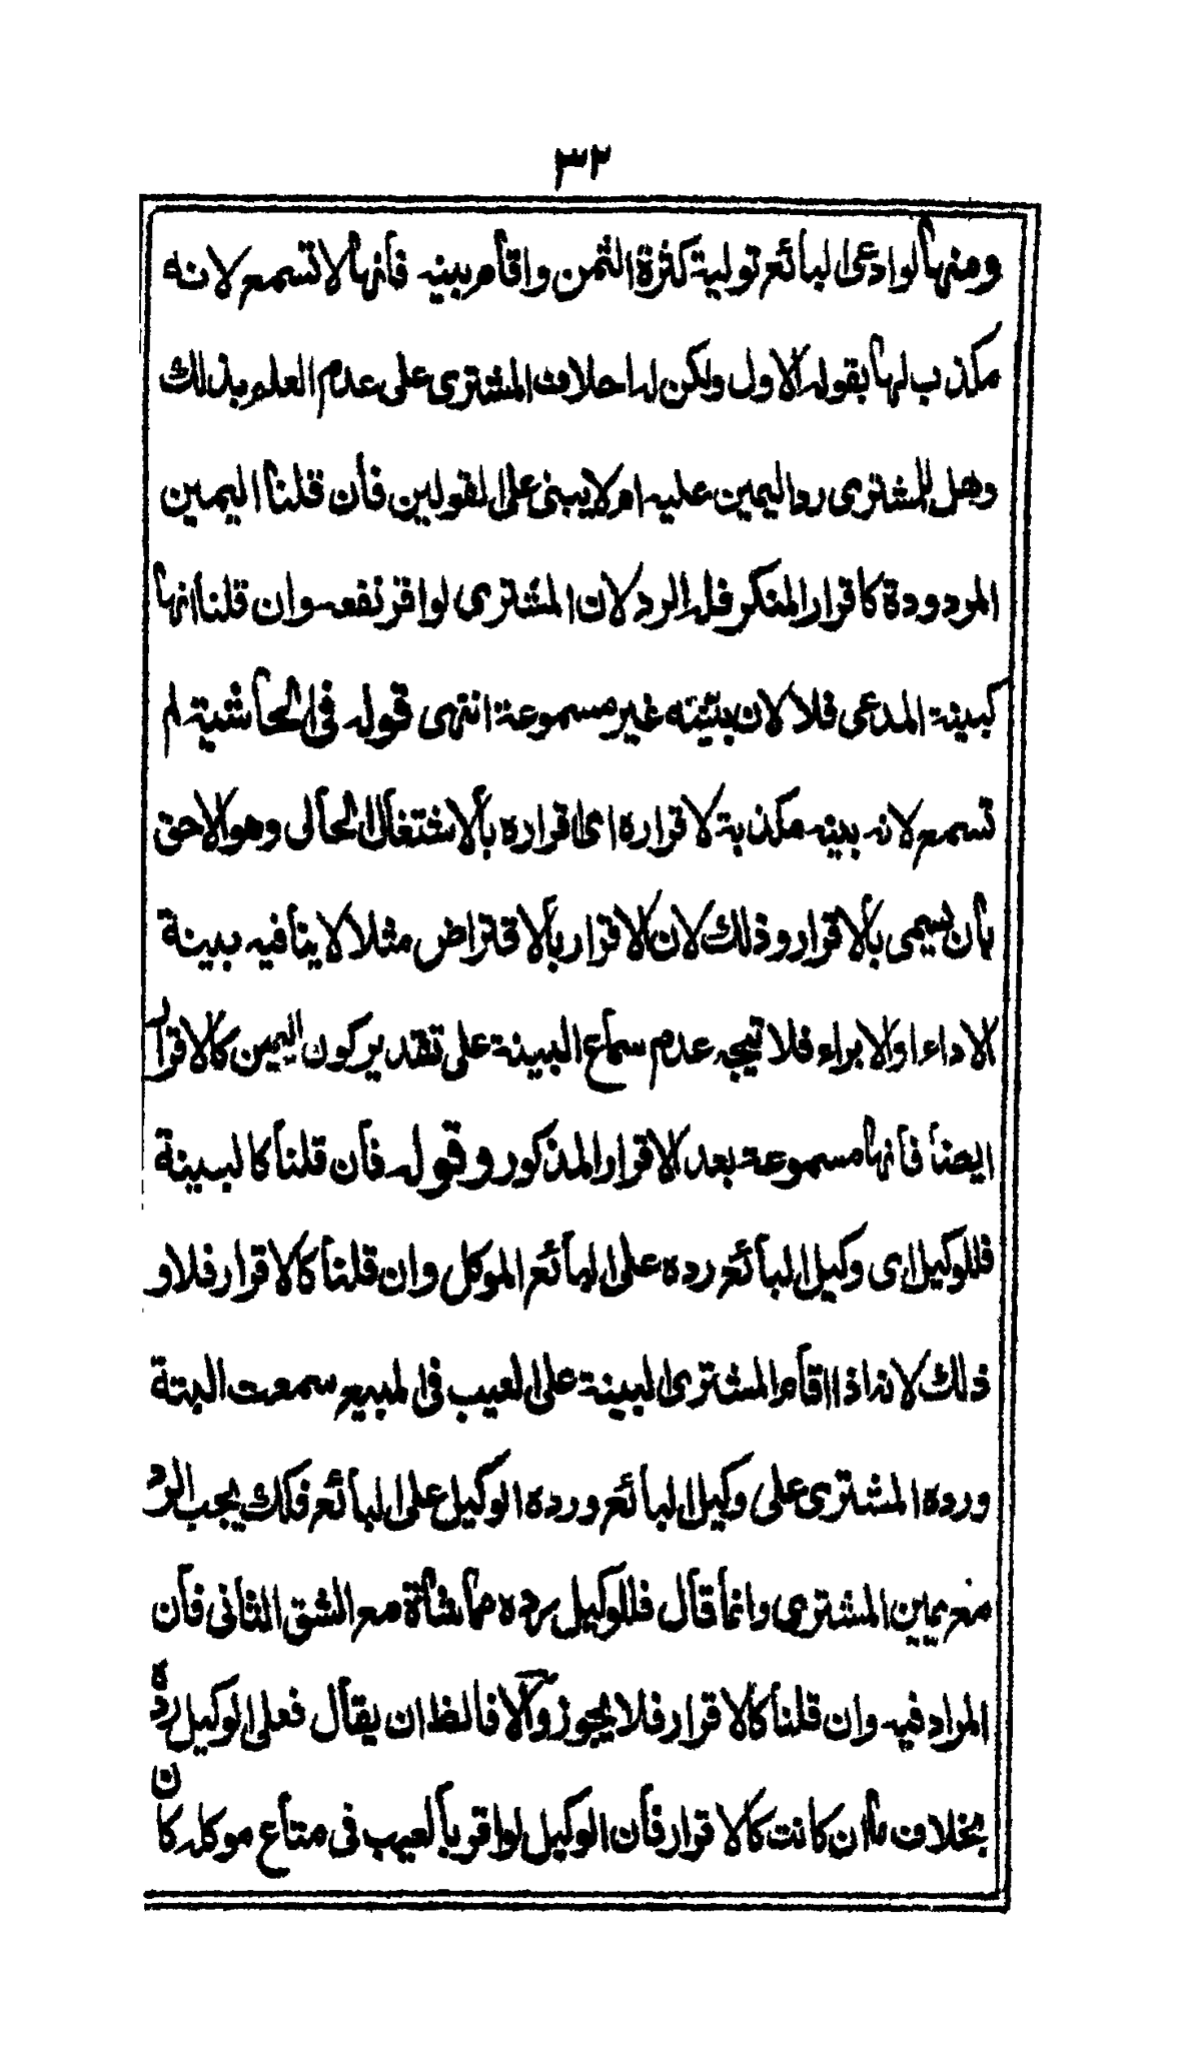 ٣٢
ومنها لو ادعى البائع تولية كثرة الثمن واقام بينه فانها لا تسمع لانه
مكذب لها بقوله الاول ولكن له احلاف المشترى على عدم العلم بذلك
وهل للمشترى رد اليمين عليه ام لا يبنى على القولين فان قلنا اليمين
المردودة كاقرار المنكر فله الرد لان المشترى لو اقر نفعه وان قلنا انها
كبينة المدعى فلا لان بينته غير مسموعة انتهى قوله فى الحاشية لم
تسمع لانه بينه مكذبة لاقراره اى اقراره بالاشتغال الحالى وهو الاحق
بان يسمى بالاقرار وذلك لان الاقرار بالاقتراض مثلا لا ينافيه بينة
الاداء او الابراء فلا تيجه عدم سماع البينة على تقدير كون اليمين كالاقرار
ايضا فانها مسموعة بعد الاقرار المذكور وقوله فان قلنا كالبينة
فللوكيل اى وكيل البائع رده على البائع الموكل وان قلنا كالاقرار فلا و
ذلك لانه اذا اقام المشترى البينة على العيب فى المبيع سمعت البتة
ورده المشترى على وكيل البائع ورده الوكيل على البائع فكك يجب الرد
مع يمين المشترى وانما قال فللوكيل رده مماشاة مع الشق الثانى فان
المراد فيه وان قلنا كالاقرار فلا يجوز والا فالظ ان يقال فعلى الوكيل رده
بخلاف ما ان كانت كالاقرار فان الوكيل لو اقر بالعيب فى متاع موكله كان